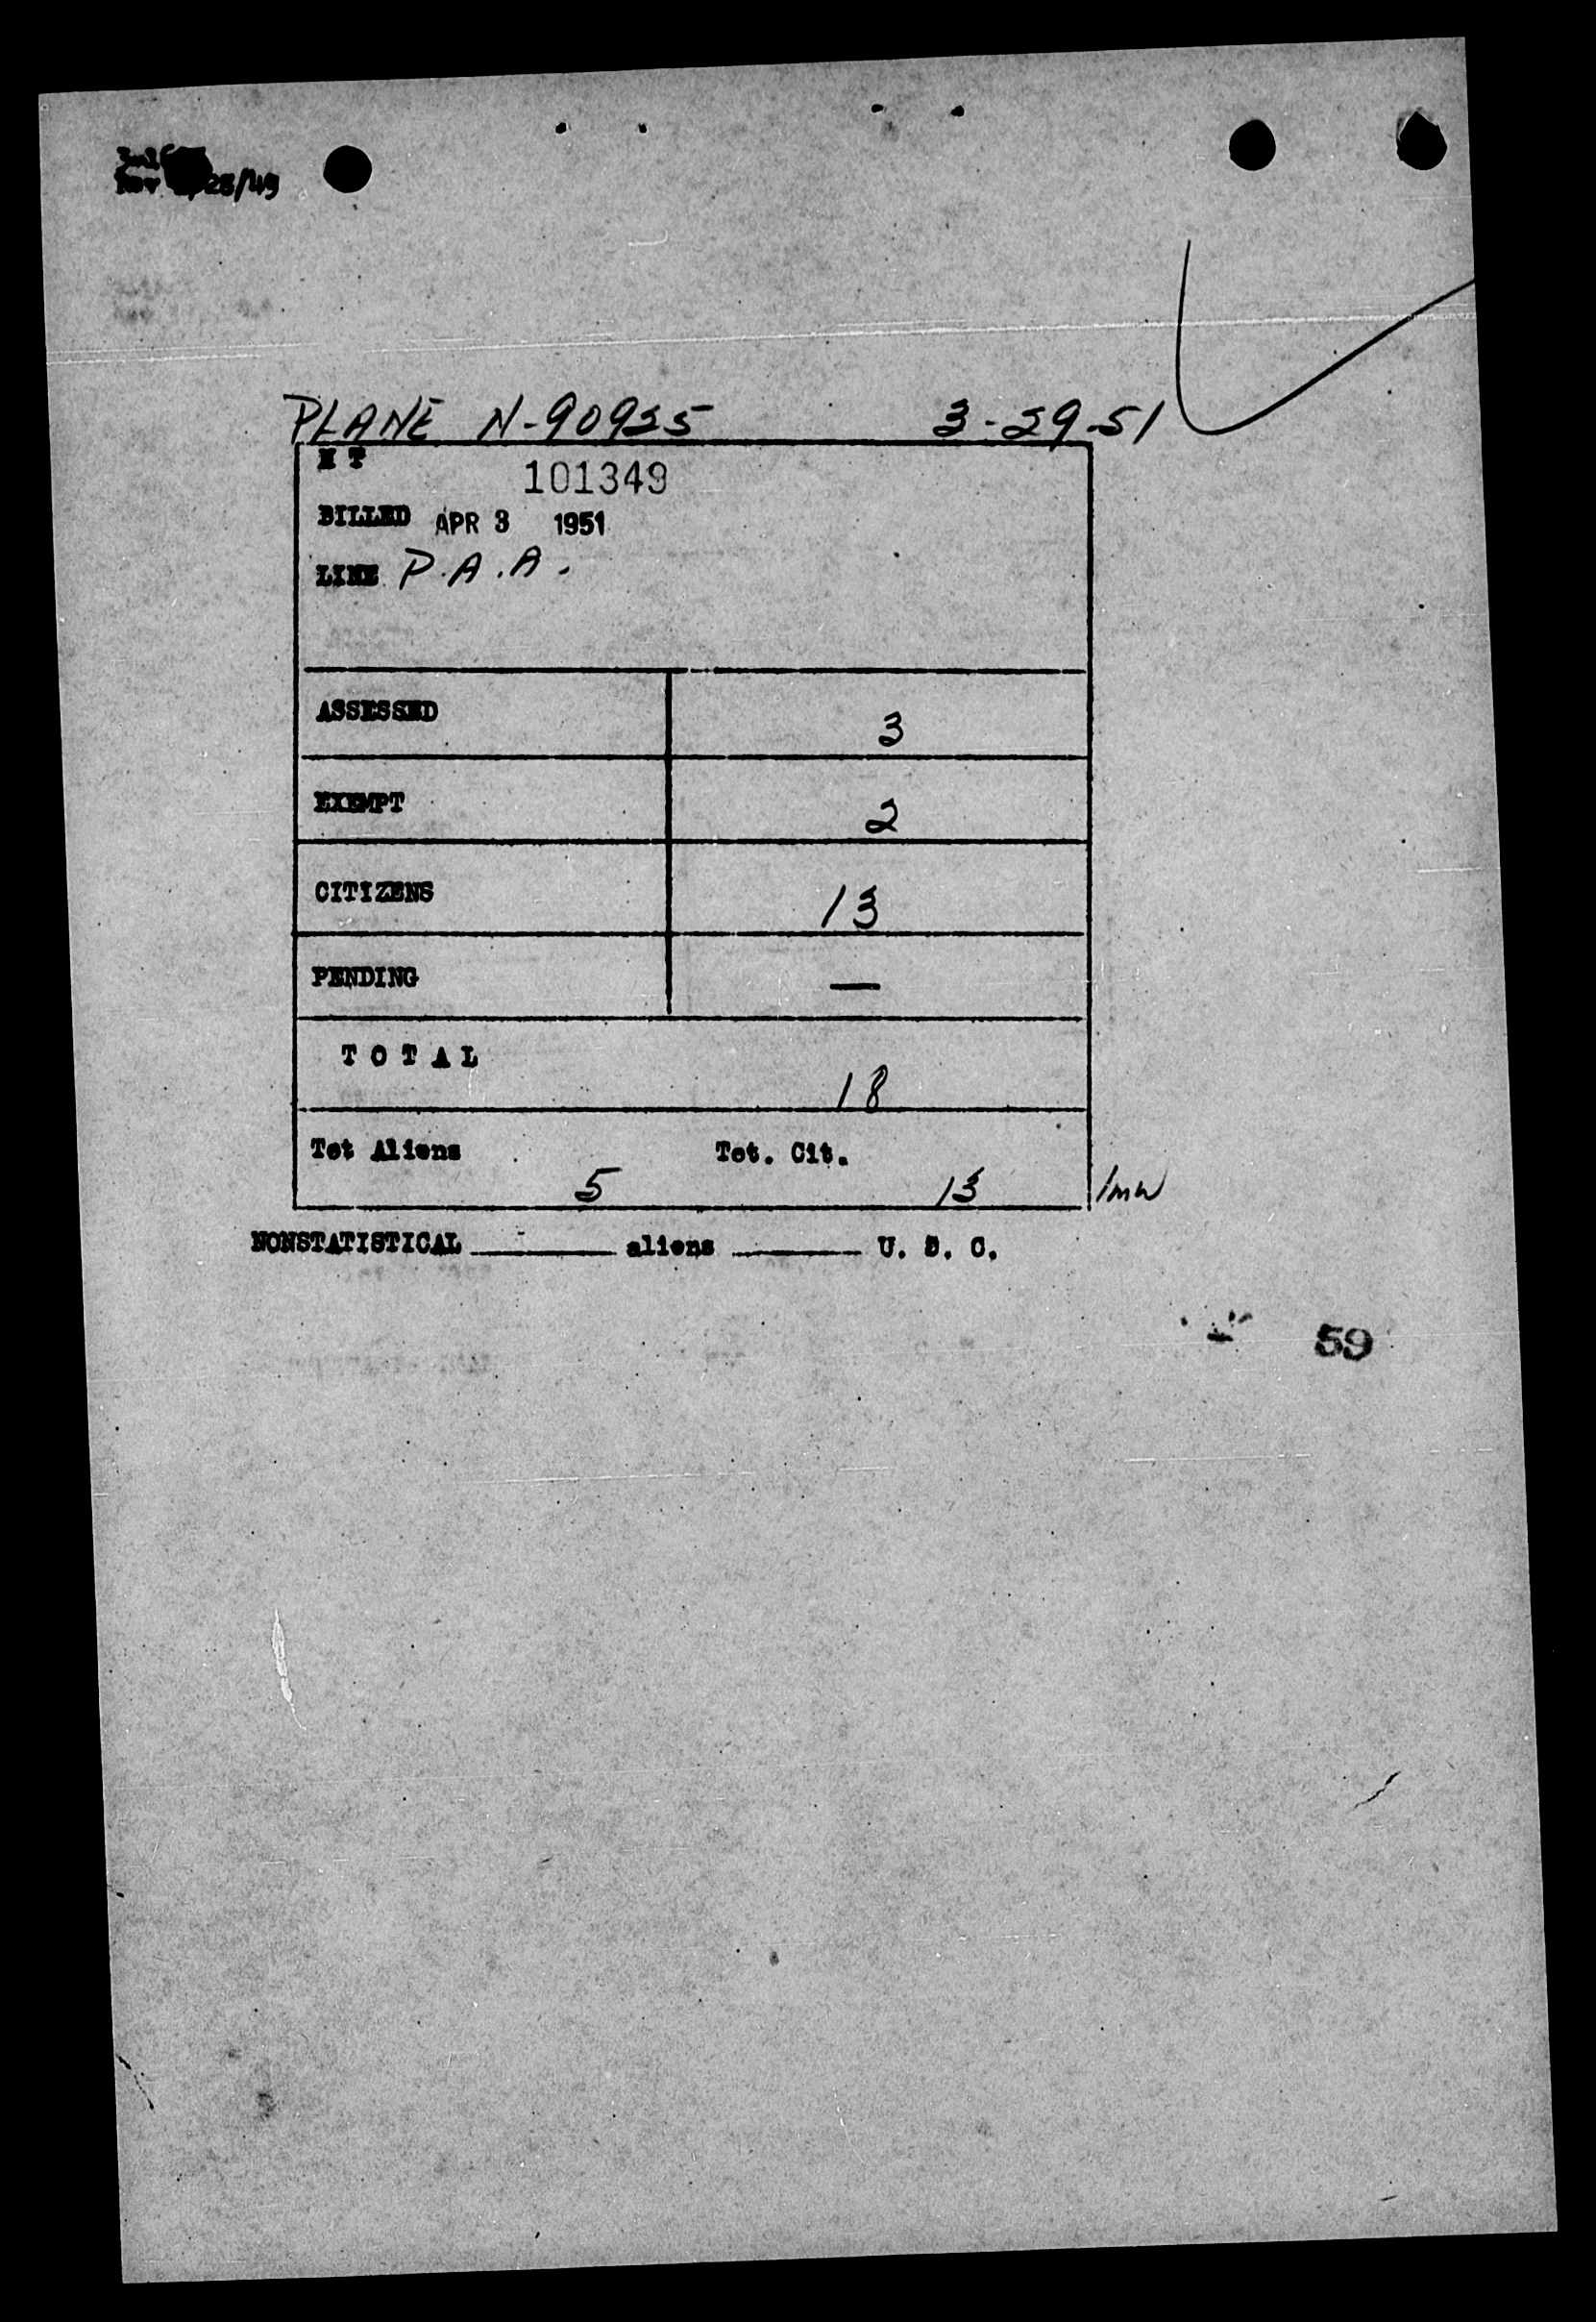 25/49
PLANE N-90925 3-29-51
101349
BILLED APR 3 1951
LINE P.A.A.
ASSESSED 3
EXEMPT 2
CITIZENS 13
PENDING —
TOTAL 18
Tot Aliens 5 Tot. Cit. 13
NONSTATISTICAL ______ aliens ______ U. S. C.
59